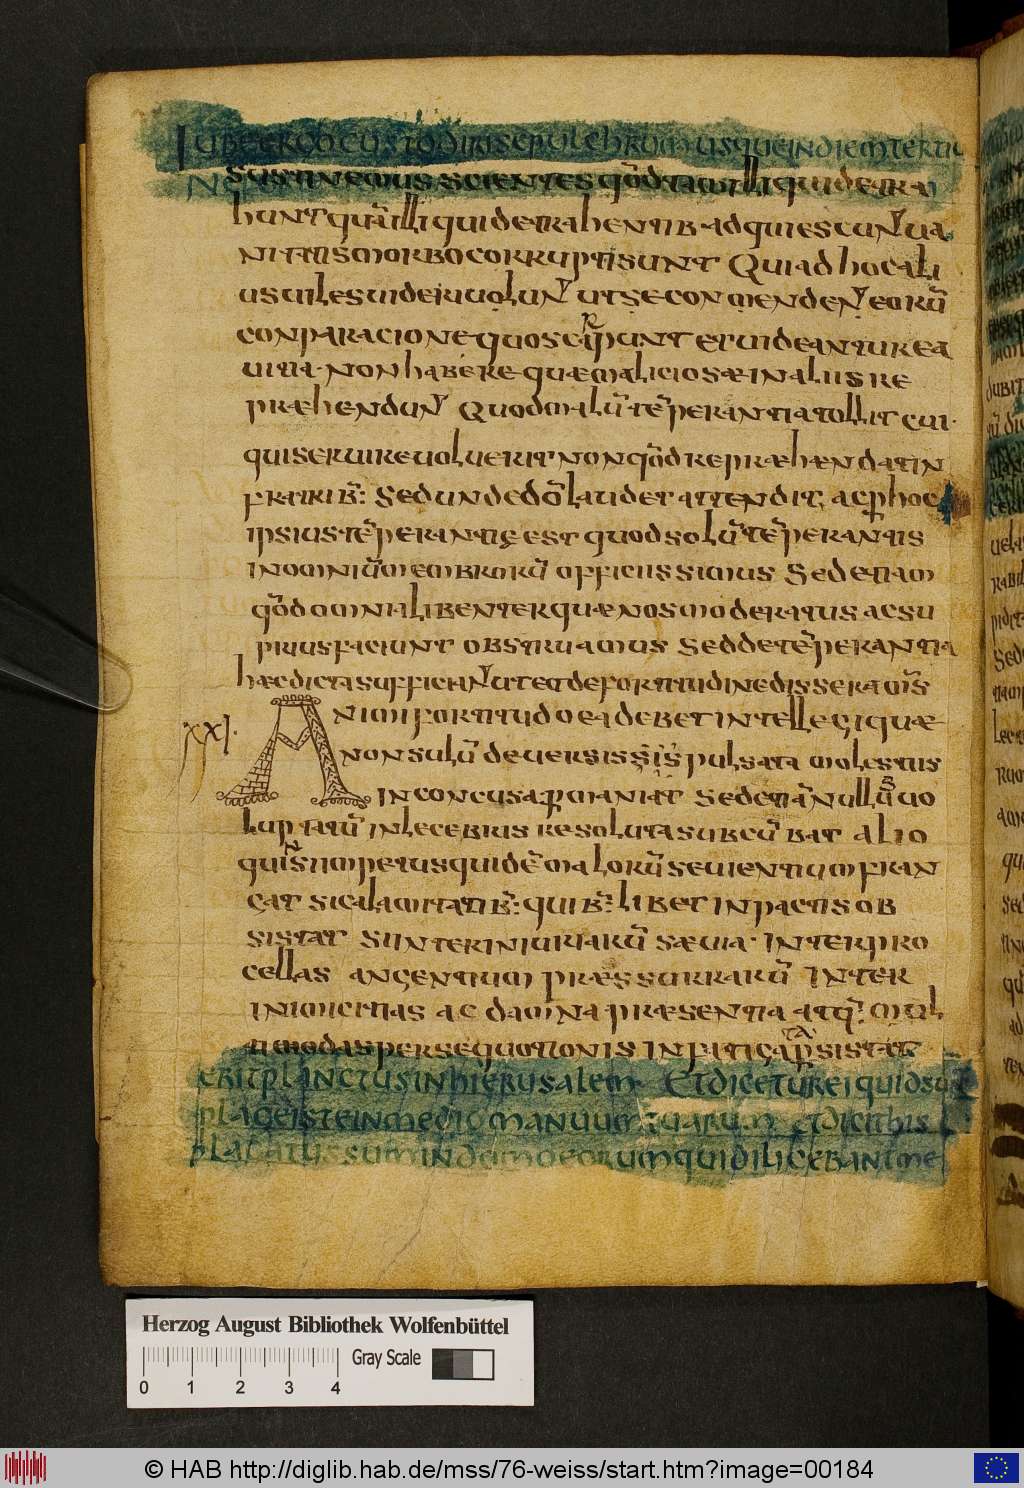 IUBE ERGO CUSTODIRI SEPULCHRUM USQUE IN DIEM TERTIU
sustinemus scientes quod tam illi qui detra
hunt quam illi qui detrahentib adquiescunt ua
nitatis morbo corrupti sunt Qui ad hoc ali
us uiles uideri uolunt ut se conmendent eorū
conparacione quos carpunt et uideantur ea
uitia non habere quæ maliciosæ in aliis re
præhendunt Quod malū tēperantia tollit cui
qui seruire uoluerit non qđ repræhændat in
fratrib: sed unde dōm laudet attendit, ac p hoc
ipsius tēperantię est quod solū tēperantis
in omniū membrorū officiis simus Sed etiam
qđ omnia libenter quæ nos moderatus ac su
prius faciunt obstruamus Sed de tēperantia
hæc dicta sufficiant ut et de fortitudine disseramus
XXI.
Animi fortitudo ea debet intellegi quæ
non solū deuersis sis pulsata molestiis
inconcusa pmaniat Sed etiā nullūs uo
luptatū inlecebrius resoluta subcūbat alio
quin si impetus quidē malorū seuientium fran
gat si calamitatib: quib: libet inpactis ob
sistat Si inter iniuriarū sæua inter pro
cellas angentium præssurrarū Inter
inimicitias ac damna præsentia atq: mul
timodas persequotionis infaticata psistat
ERIT PLANCTUS IN HIERUSALEM ET DICETUR EI QUID SUNT
PLAGE ISTE IN MEDIO MANUUM TUARUM ET DICIT HIS
PLAGATUS SUM IN DOMO EORUM QUI DILIGEBANT ME
Herzog August Bibliothek Wolfenbüttel
Gray Scale
0 1 2 3 4
© HAB http://diglib.hab.de/mss/76-weiss/start.htm?image=00184